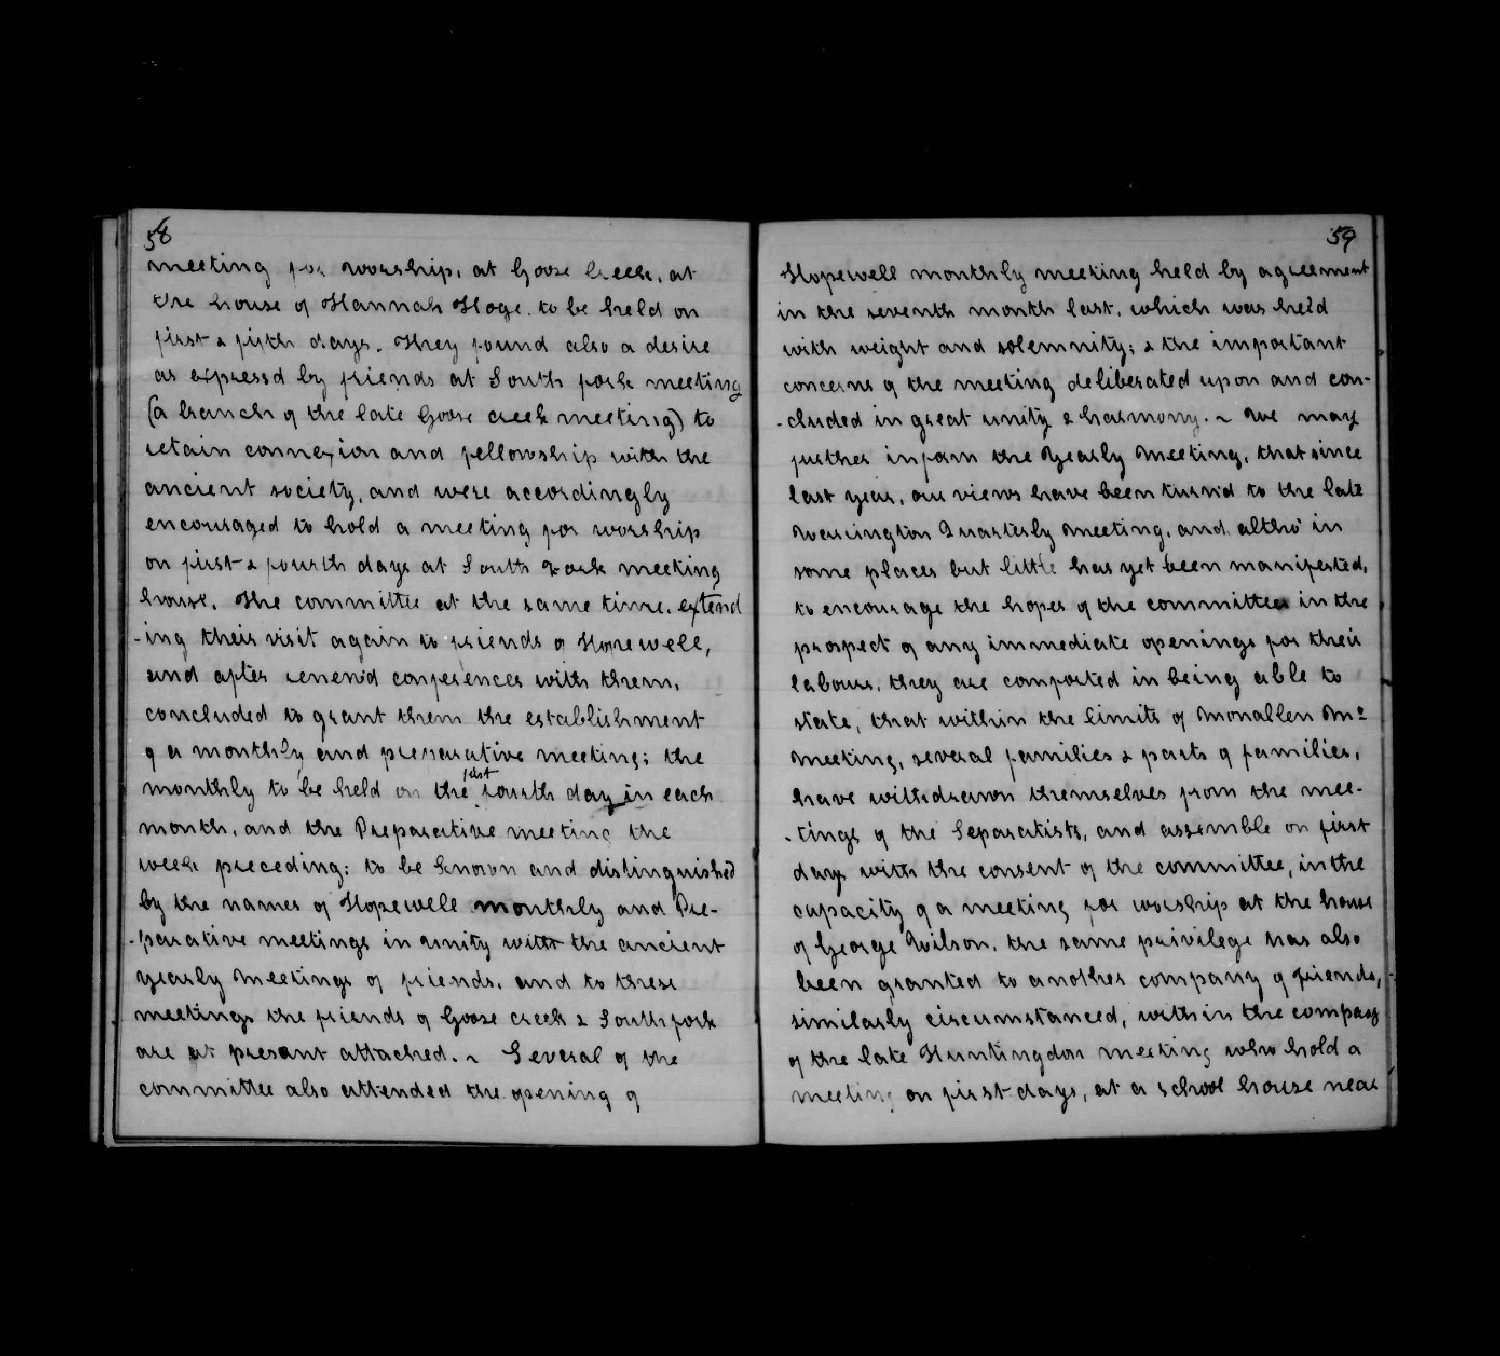 58
meeting for worship, at Goose Creek, at
the house of Hannah Hoge. to be held on
first & fifth days. They found also a desire
as expressd by friends at South fork meeting
(a branch of the late Goose creek meeting) to
retain connexion and fellowship with the
ancient society, and were accordingly
encouraged to hold a meeting for worship
on first & fourth days at South Fork meeting
house. The committee at the same time. extend
-ing their visit again to friends of Hopewell,
and after renew'd conferences with them,
concluded to grant them the establishment
of a monthly and preparative meeting; the
monthly to be held on the 1st fourth day in each
month, and the Preparative meeting the
week preceding: to be known and distinguished
by the names of Hopewell monthly and Pre-
-parative meetings in unity with the ancient
yearly meetings of friends. and to these
meetings the friends of Goose creek & South fork
are at presant attached. ~ Several of the
committee also attended the opening of
59
Hopewell monthly meeting held by agreement
in the seventh month last, which was held
with weight and solemnity; & the important
concerns of the meeting deliberated upon and con-
-cluded in great unity & harmony. ~ We may
further inform the Yearly Meeting, that since
last year, our views have been turn'd to the late
Warrington Quarterly Meeting, and altho' in
some places but little has yet been manifested,
to encourage the hopes of the committee in the
prospect of any immediate openings for their
labours, they are comforted in being able to
state, that within the limits of Monallen Mo.
Meeting, several families & parts of families,
have withdrawn themselves from the mee-
-tings of the Separatists, and assemble on first
days with the consent of the committee, in the
capacity of a meeting for worship at the house
of George Wilson. the same privilege has also
been granted to another company of friends,
similarly circumstanced, within the compass
of the late Huntingdon meeting who hold a
meeting on first days, at a school house near